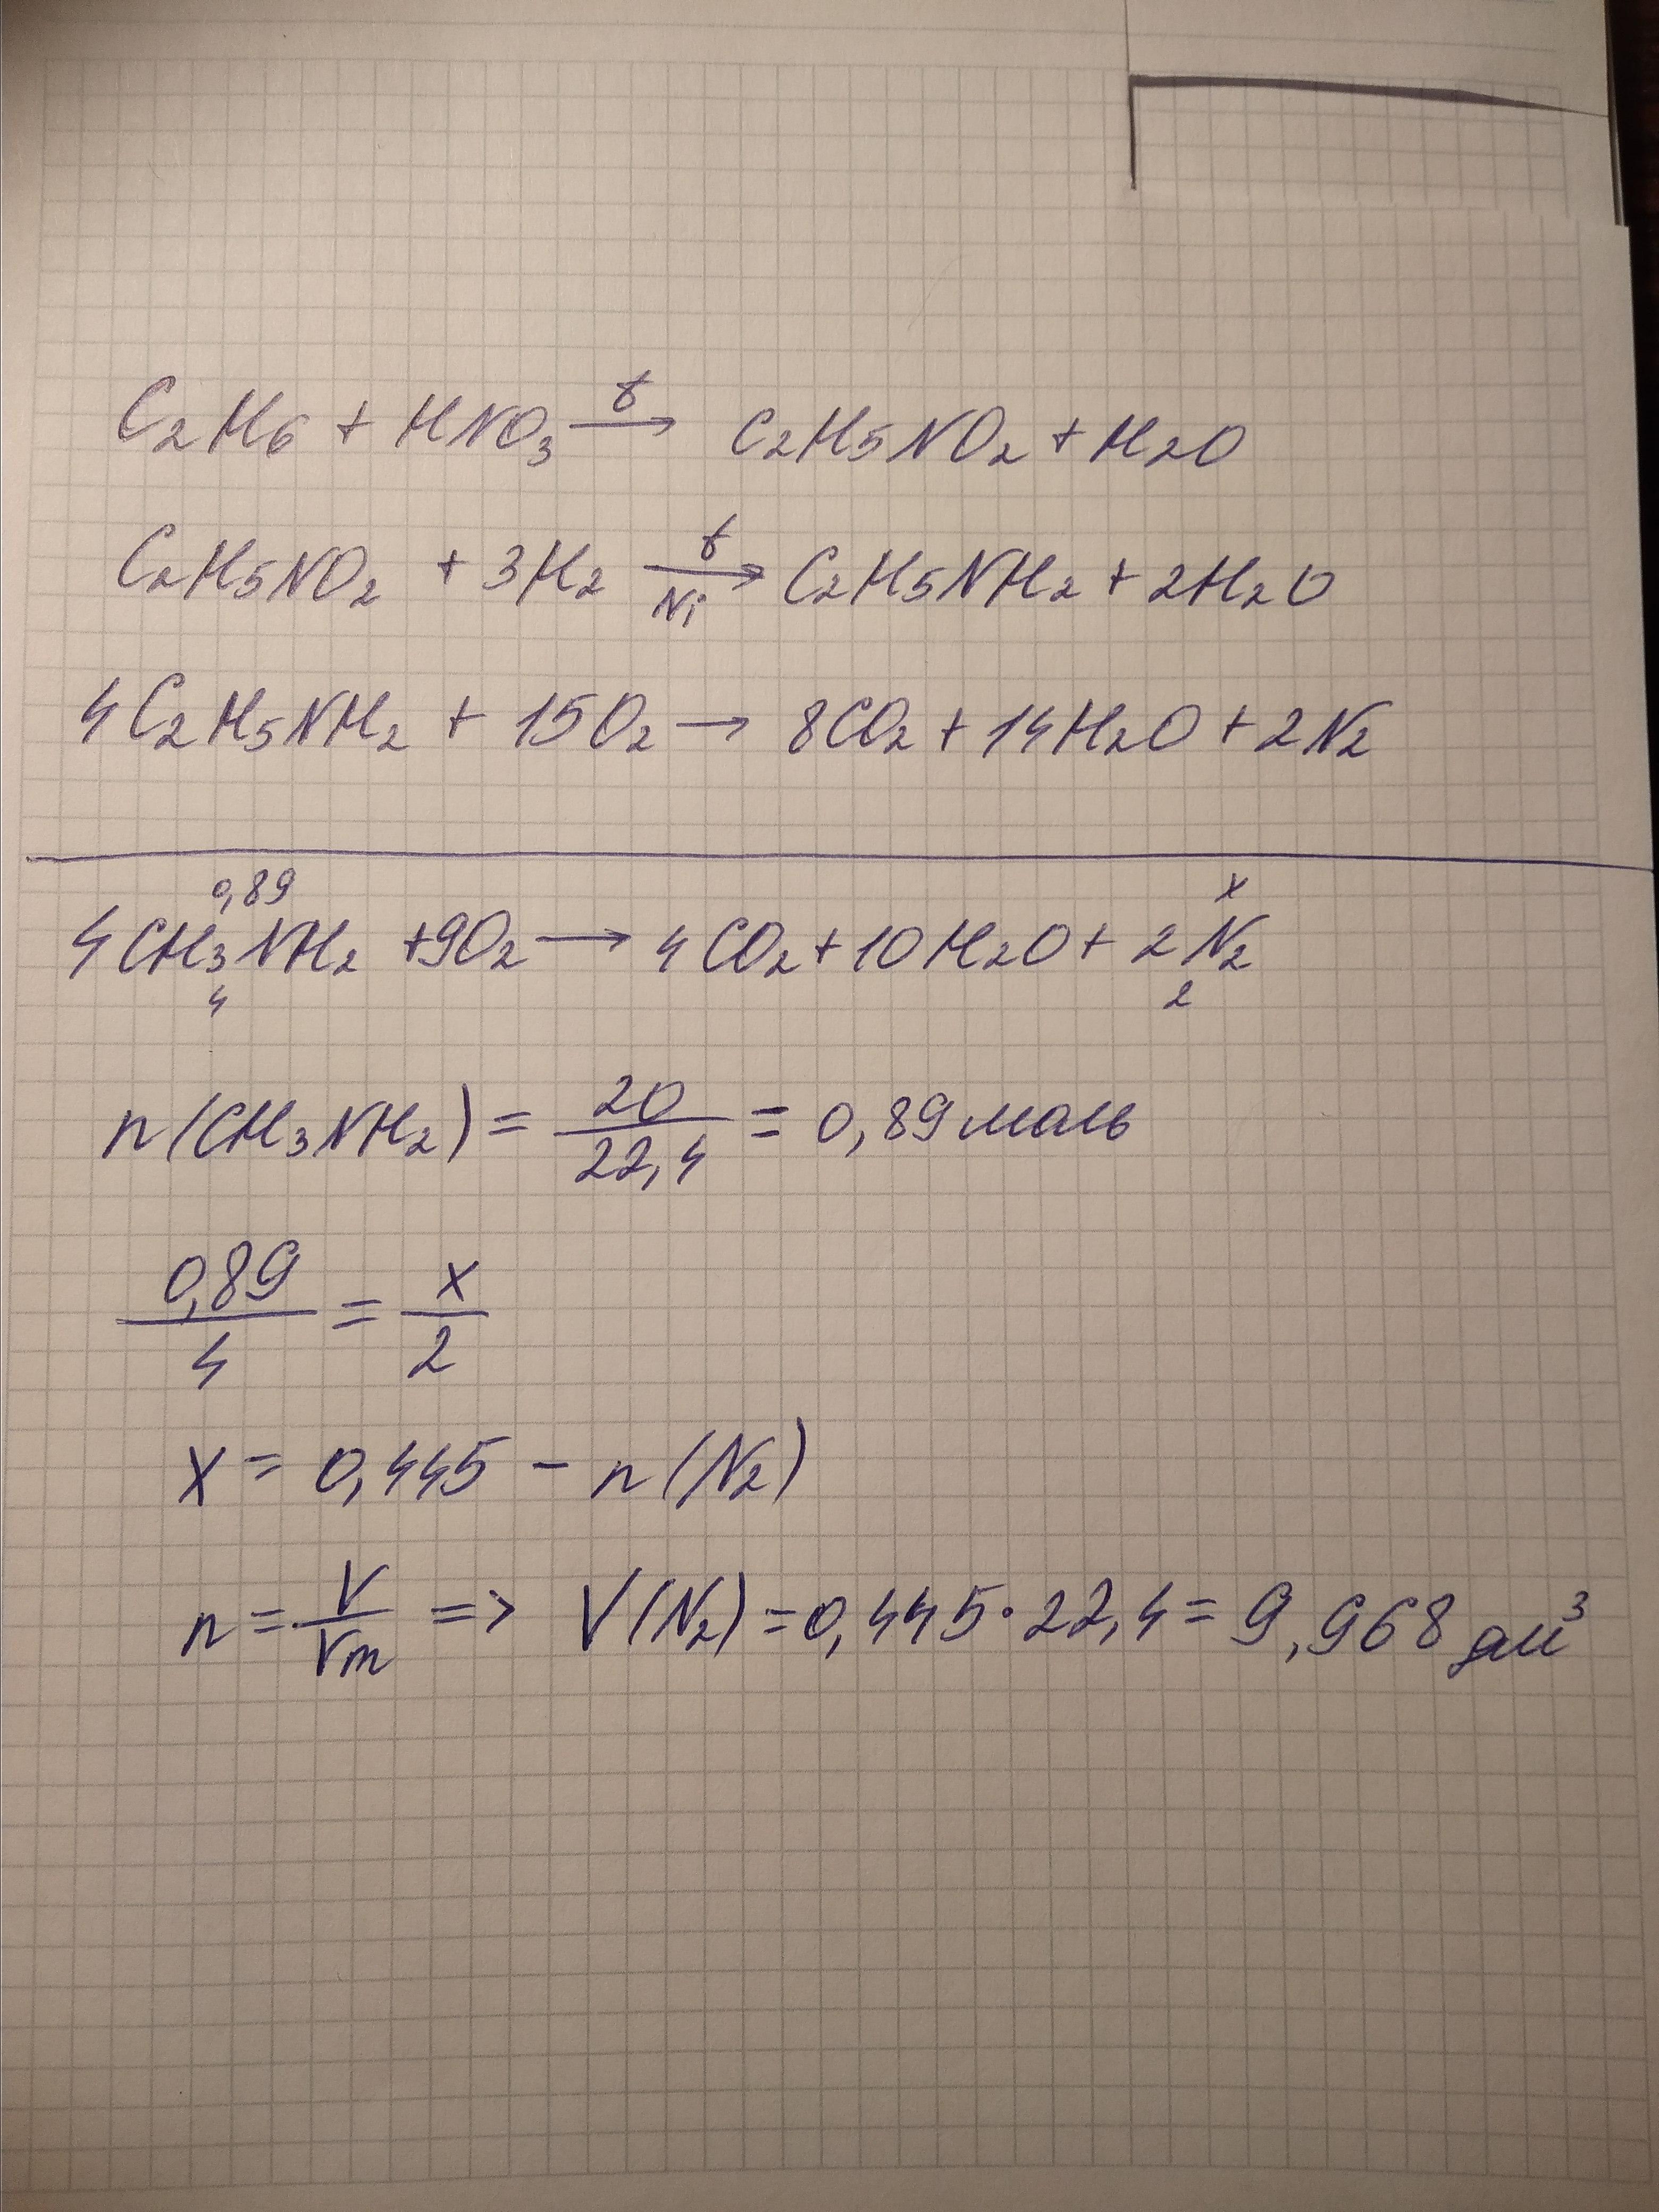 C₂H₆ + HNO₃ —t→ C₂H₅NO₂ + H₂O
C₂H₅NO₂ + 3H₂ —t/Ni→ C₂H₅NH₂ + 2H₂O
4C₂H₅NH₂ + 15O₂ → 8CO₂ + 14H₂O + 2N₂
0,89 x
4CH₃NH₂ + 9O₂ → 4CO₂ + 10H₂O + 2N₂
4 2
n(CH₃NH₂) = 20/22,4 = 0,89 моль
0,89/4 = x/2
x = 0,445 – n(N₂)
n = V/Vm => V(N₂) = 0,445·22,4 = 9,968 дм³